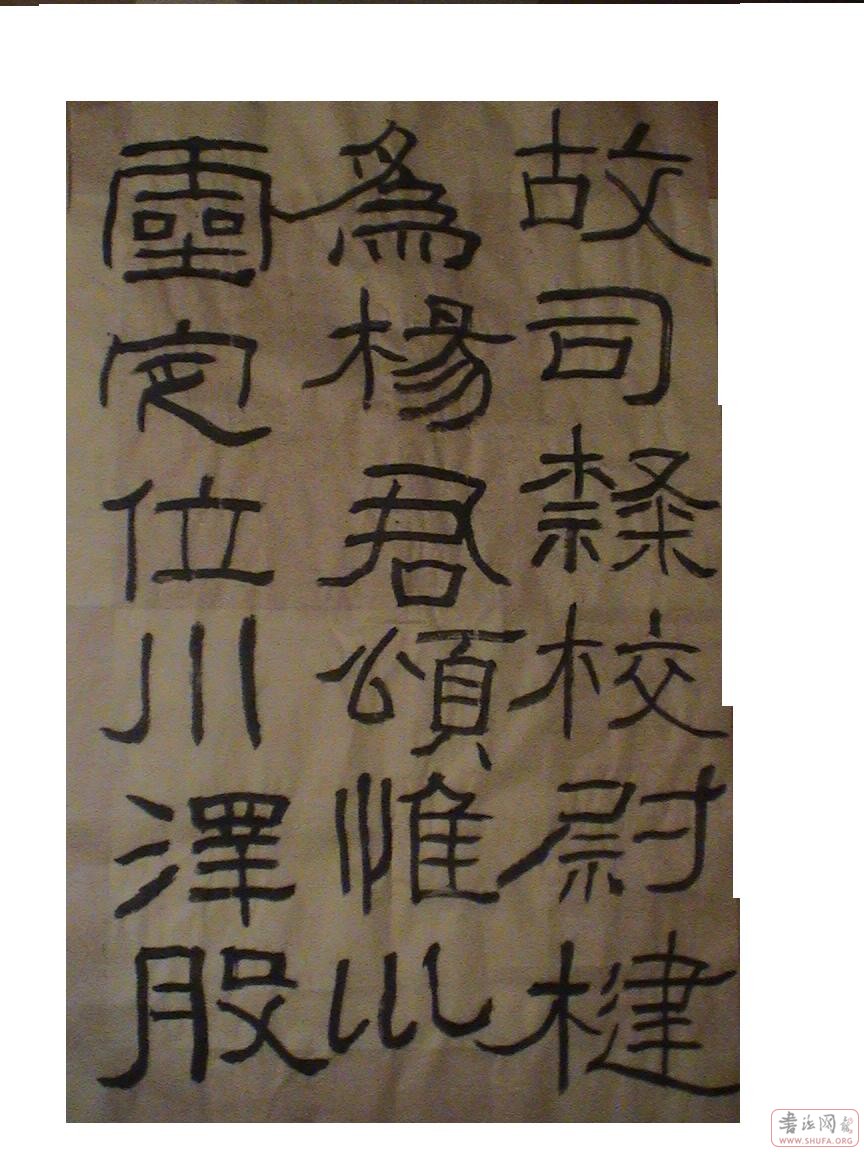 故司隸校尉楗
為楊君頌惟巛
靈定位川澤股
書法网
WWW.SHUFA.ORG